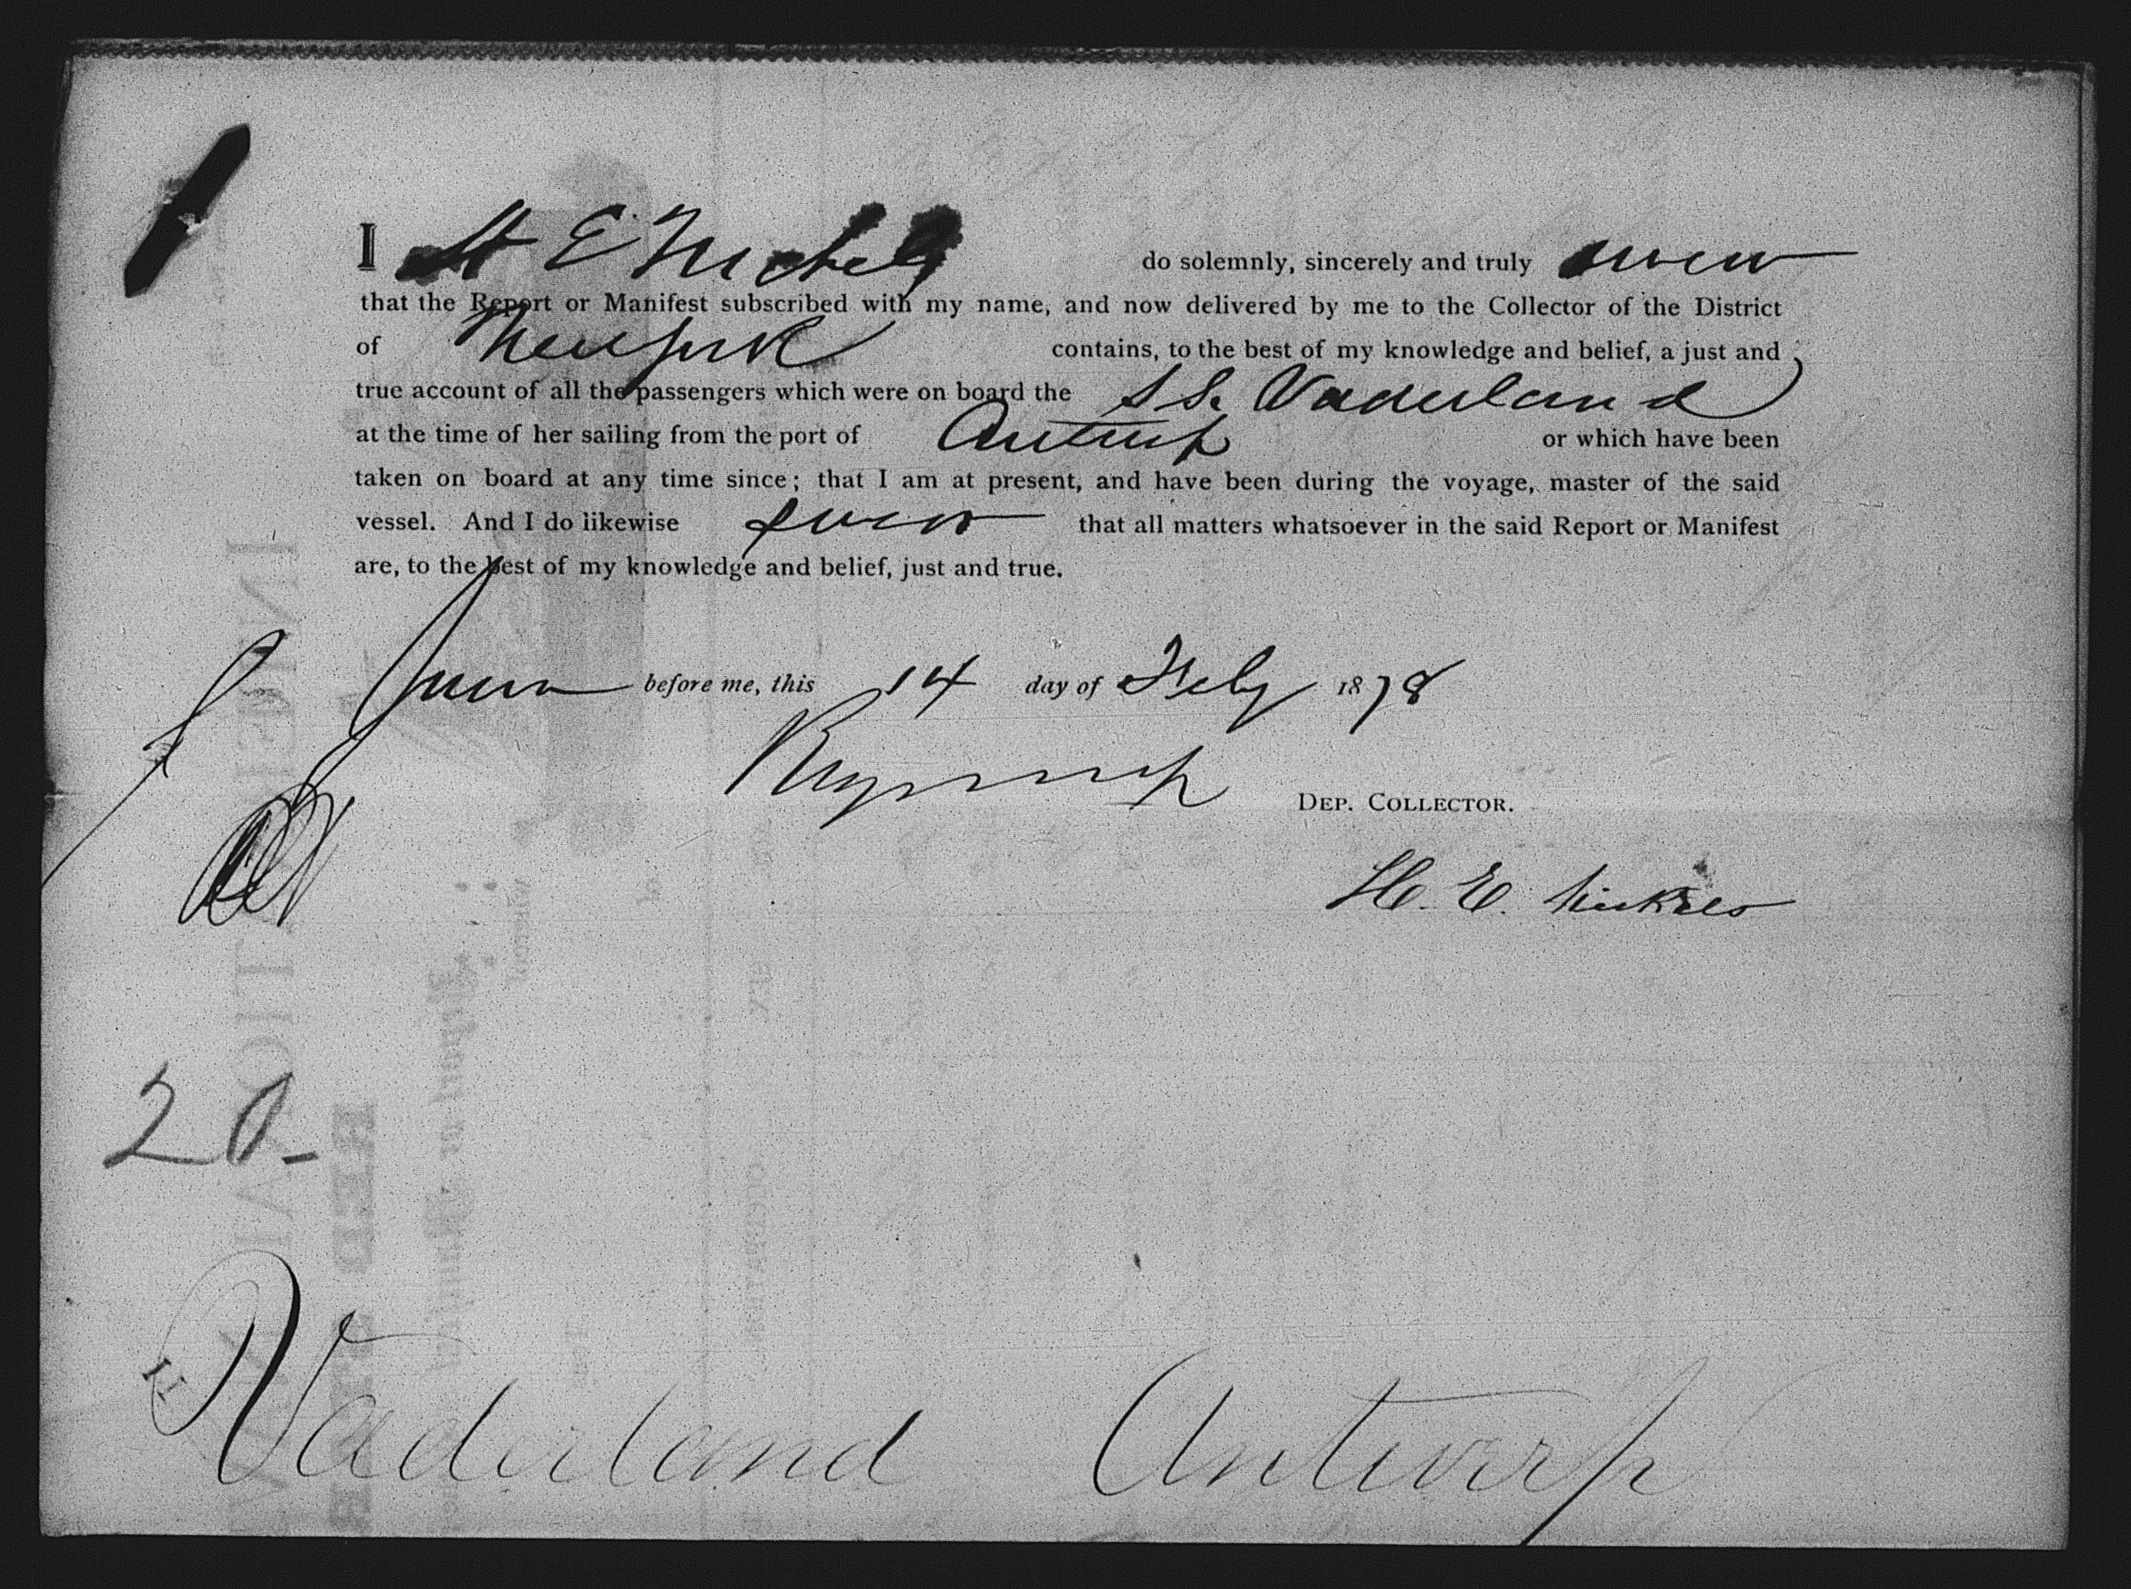 I H E Nickels do solemnly, sincerely and truly swear
that the Report or Manifest subscribed with my name, and now delivered by me to the Collector of the District
of New York contains, to the best of my knowledge and belief, a just and
true account of all the passengers which were on board the SS. Vaderland
at the time of her sailing from the port of Antwerp or which have been
taken on board at any time since; that I am at present, and have been during the voyage, master of the said
vessel. And I do likewise swear that all matters whatsoever in the said Report or Manifest
are, to the best of my knowledge and belief, just and true.
Sworn before me, this 14 day of Feby 1878
DEP. COLLECTOR.
H. E. Nickels
20-
Vaderland Antwerp